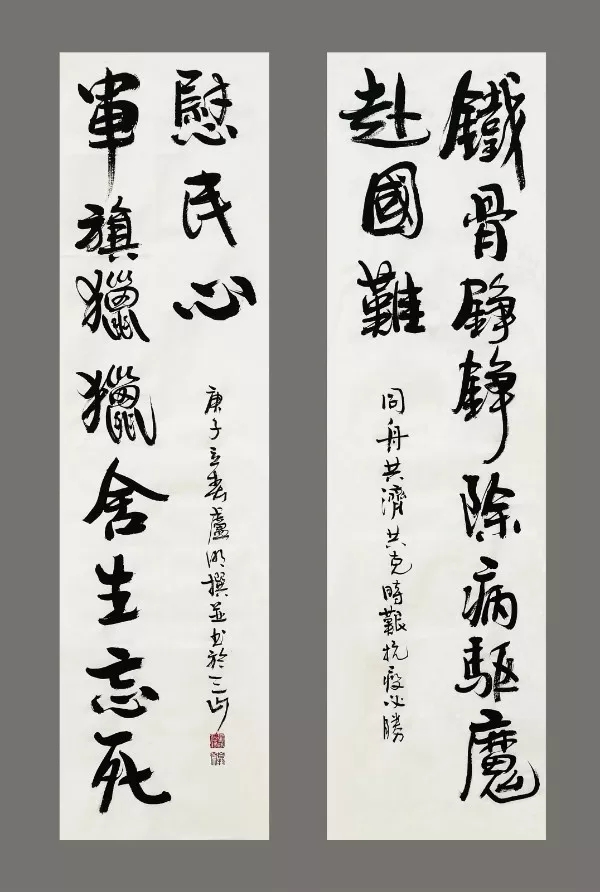 鐵骨錚錚除病驅魔
赴國難
同舟共濟共克時艱抗疫必勝
軍旗獵獵舍生忘死
慰民心
庚子立春盧明撰並書於三山